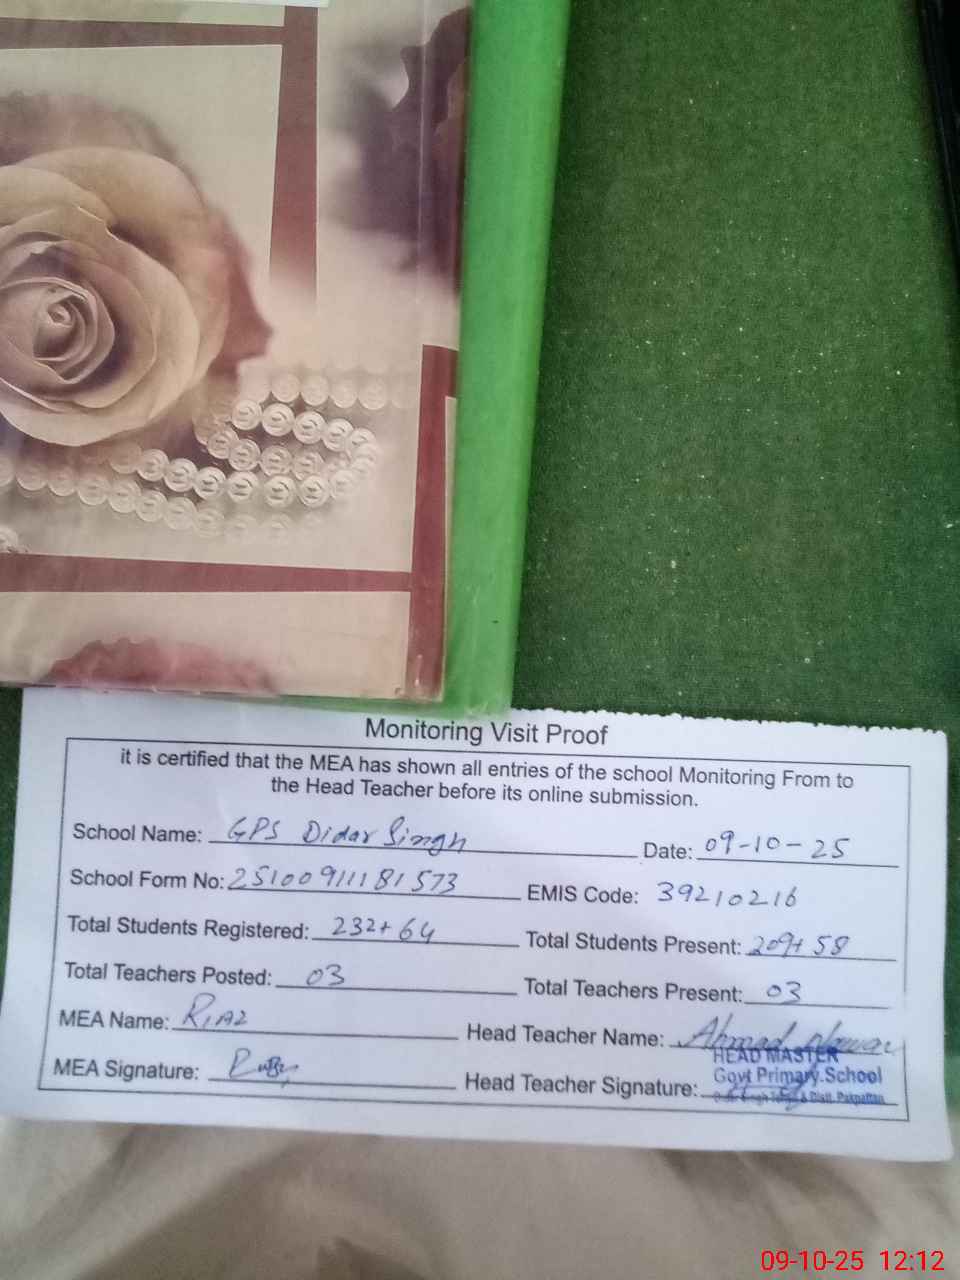 Monitoring Visit Proof
it is certified that the MEA has shown all entries of the school Monitoring From to
the Head Teacher before its online submission.
School Name: GPS Didar Singh Date: 09-10-25
School Form No: 25100911181573 EMIS Code: 39210216
Total Students Registered: 232+64 Total Students Present: 209+58
Total Teachers Posted: 03 Total Teachers Present: 03
MEA Name: Riaz Head Teacher Name: Ahmad Nawaz
HEAD MASTER
MEA Signature: Head Teacher Signature: Govt Primary School
Didar Singh & Distt. Pakpattan
09-10-25 12:12